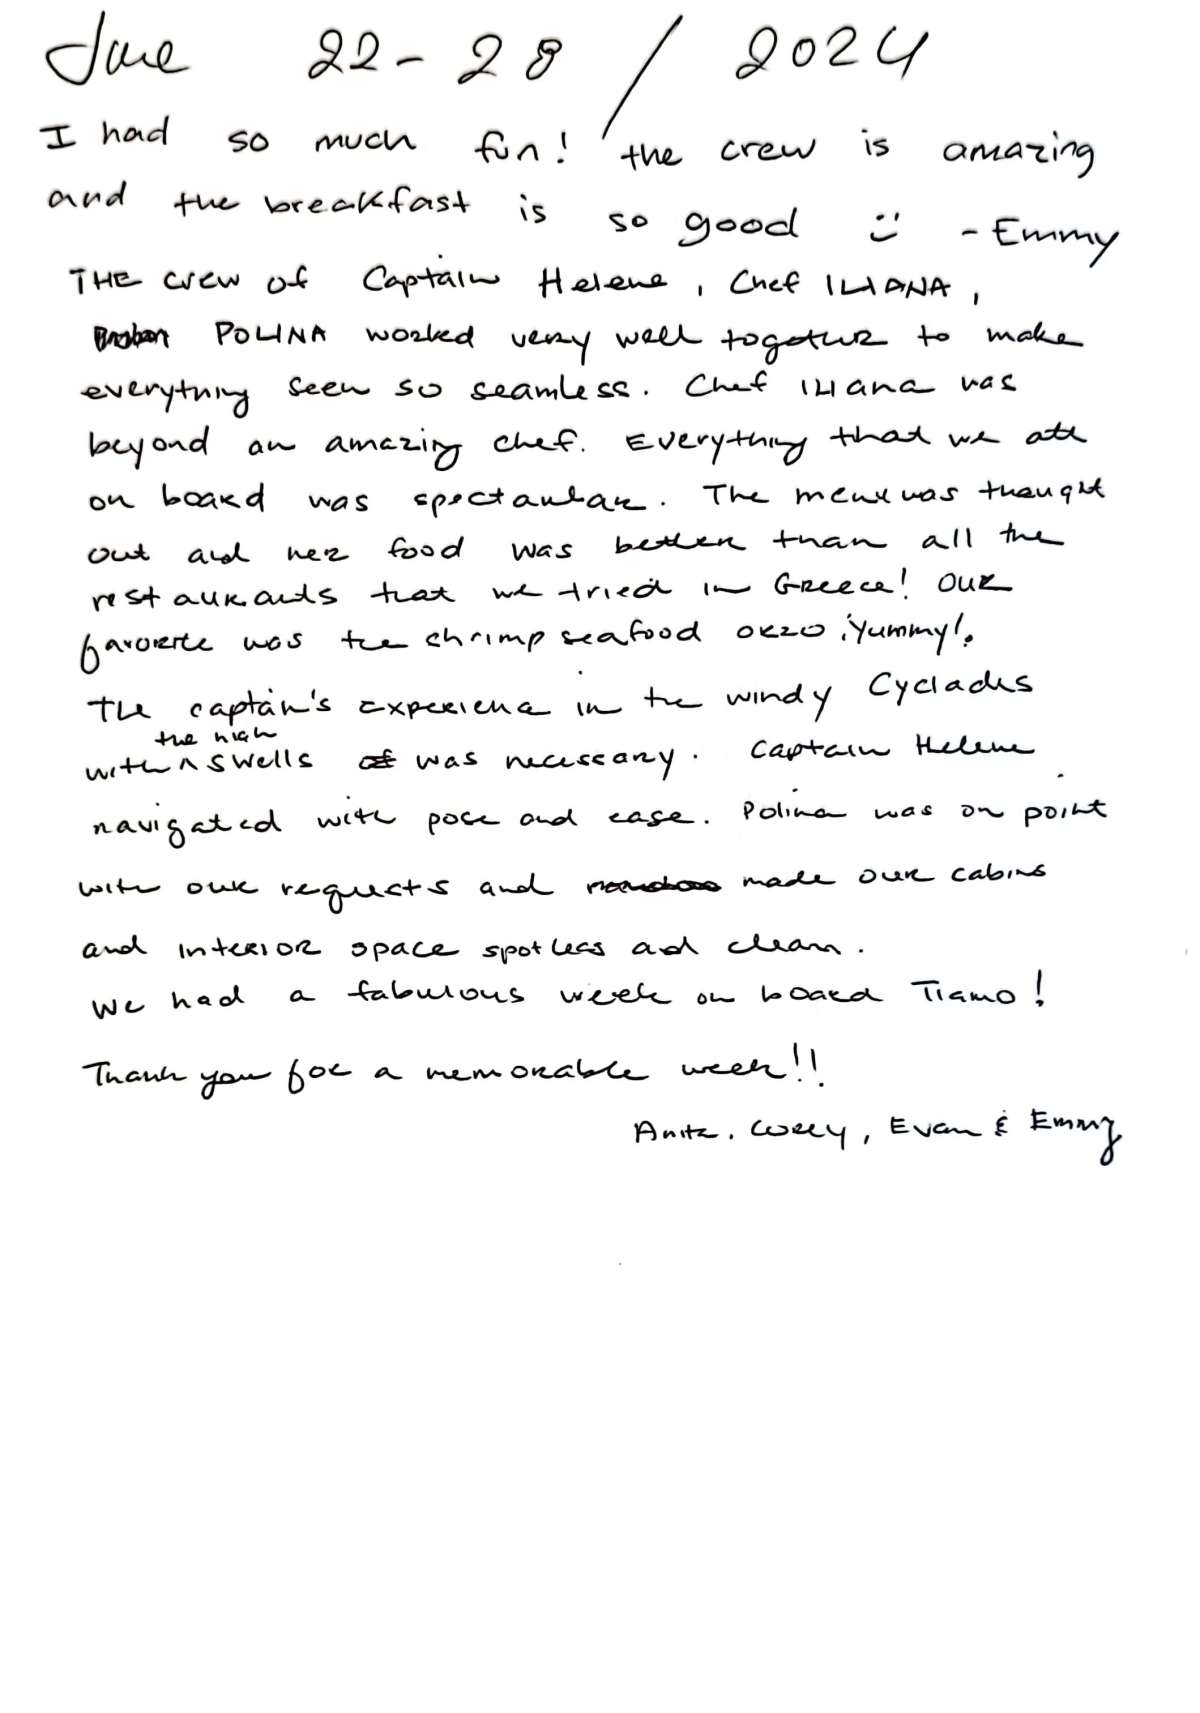 June 22-28 / 2024
I had so much fun! the crew is amazing
and the breakfast is so good :) - Emmy
THE crew of Captain Helene, Chef ILIANA,
POLINA worked very well together to make
everything seem so seamless. Chef Iliana was
beyond an amazing chef. Everything that we ate
on board was spectacular. The menu was thought
out and her food was better than all the
restaurants that we tried in Greece! Our
favorite was the shrimp seafood orzo ¡Yummy!.
The captain's experience in the windy Cyclades
with ^ the high swells was necessary. Captain Helene
navigated with pose and ease. Polina was on point
with our requests and made our cabins
and interior space spotless and clean.
We had a fabulous week on board Tiamo!
Thank you for a memorable week!!
Anita, Corey, Evan & Emmy